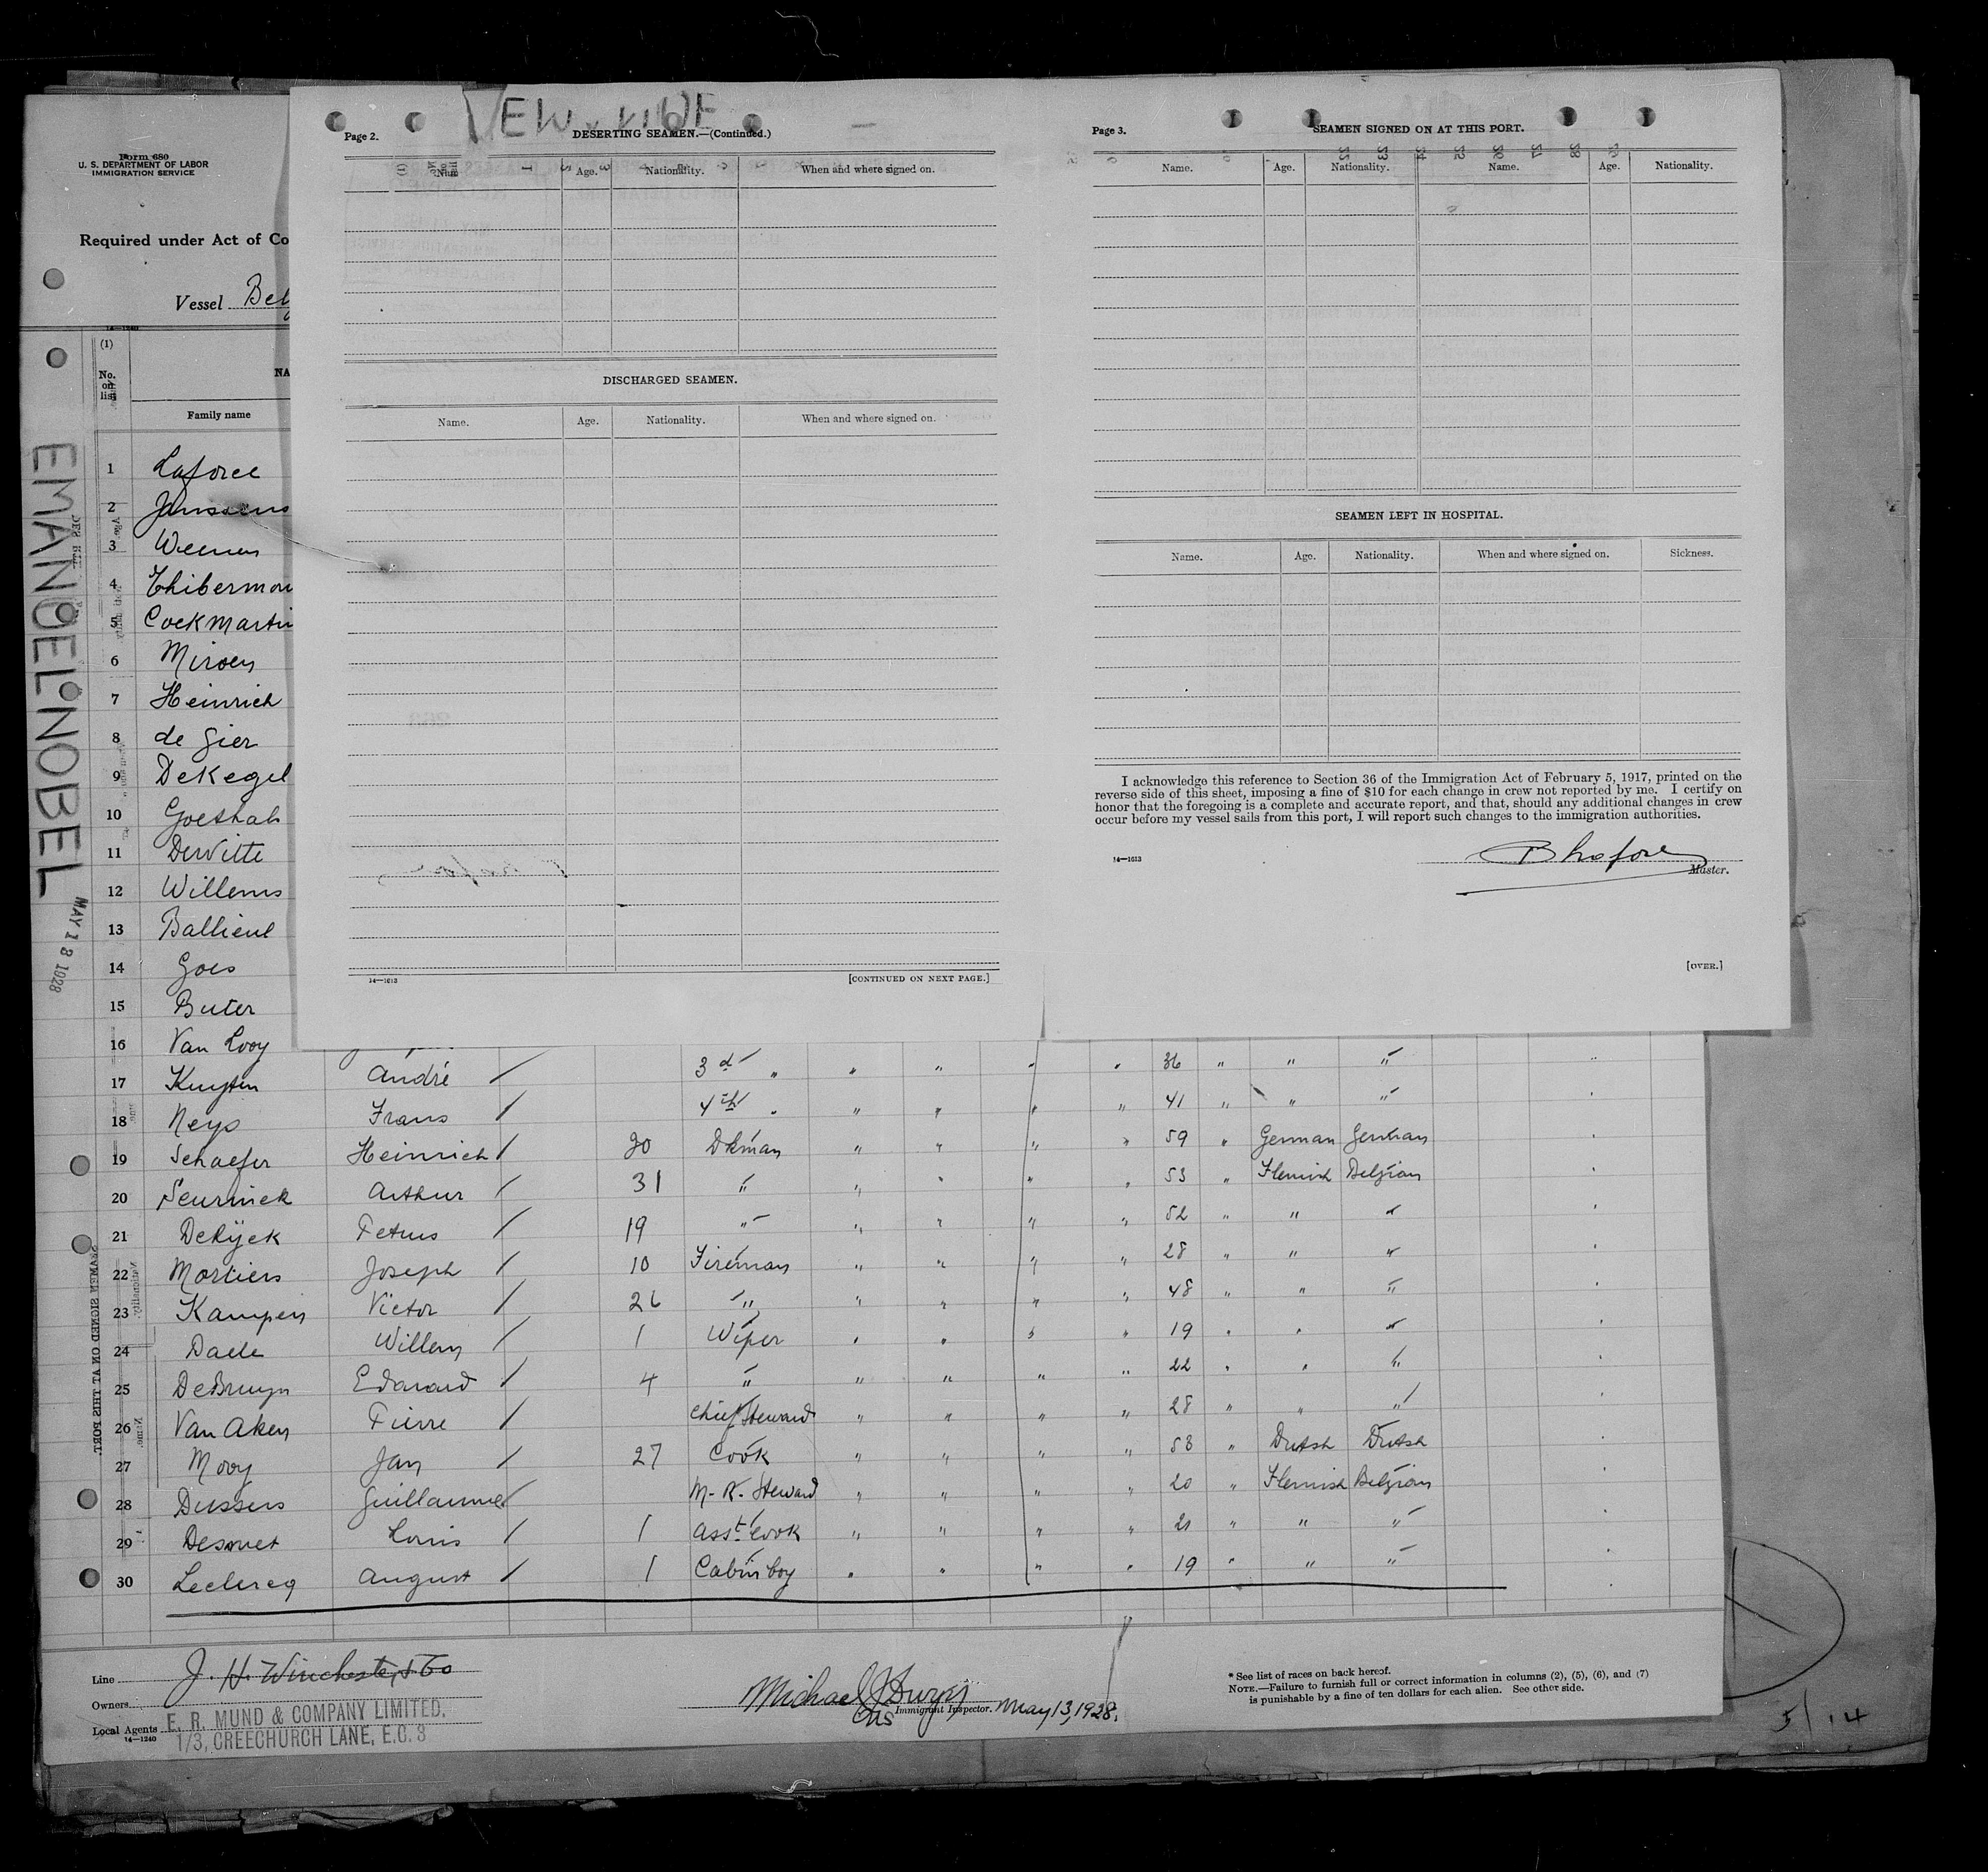 Form 680
U. S. DEPARTMENT OF LABOR
IMMIGRATION SERVICE
Required under Act of Co
Vessel Belg
14—1240
(1)
No. on list
NA
Family name
EMANUEL NOBEL
MAY 13 1928
1 Laforce
2 Janssens
3 Weemen
4 Thibermon
5 Cockmartin
6 Miroen
7 Heinrich
8 de Gier
9 DeKegel
10 Goethals
11 DeWitte
12 Willems
13 Ballieul
14 Goes
15 Buter
16 Van Looy
17 Kuyten André / 3d " " " " " 36 " " "
18 Neys Frans / 4th " " " " " 41 " " "
19 Schaefer Heinrich / 30 Dkman " " " " 59 " German German
20 Seurinck Arthur / 31 " " " " " 53 " Flemish Belgian
21 DeRijck Petrus / 19 " " " " " 52 " " "
22 Mortiers Joseph / 10 Fireman " " " " 28 " " "
23 Kampen Victor / 26 " " " " " 48 " " "
24 Daele Willem / 1 Wiper " " " " 19 " " "
25 DeBruyn Edward / 4 " " " " " 22 " " "
26 Van Aken Pierre / Chief Steward " " " " 28 " " "
27 Mooy Jan / 27 Cook " " " " 58 " Dutch Dutch
28 Dussers Guillaume / M-R. Steward " " " " 20 " Flemish Belgian
29 Desmet Louis / 1 Asst Cook " " " " 21 " " "
30 Leclercq August / 1 Cabin boy " " " " 19 " " "
Line J. H. Winchester & Co
Owners
Local Agents E. R. MUND & COMPANY LIMITED,
1/3, CREECHURCH LANE, E.C. 3
14—1240
Michael J Dwyer
Immigrant Inspector. May 13, 1928.
* See list of races on back hereof.
NOTE.—Failure to furnish full or correct information in columns (2), (5), (6), and (7)
is punishable by a fine of ten dollars for each alien. See other side.
5/14
Page 2.
DESERTING SEAMEN.—(Continued.)
Name. Age. Nationality. When and where signed on.
DISCHARGED SEAMEN.
Name. Age. Nationality. When and where signed on.
14—1613
[CONTINUED ON NEXT PAGE.]
Page 3.
SEAMEN SIGNED ON AT THIS PORT.
Name. Age. Nationality. Name. Age. Nationality.
SEAMEN LEFT IN HOSPITAL.
Name. Age. Nationality. When and where signed on. Sickness.
I acknowledge this reference to Section 36 of the Immigration Act of February 5, 1917, printed on the
reverse side of this sheet, imposing a fine of $10 for each change in crew not reported by me. I certify on
honor that the foregoing is a complete and accurate report, and that, should any additional changes in crew
occur before my vessel sails from this port, I will report such changes to the immigration authorities.
14—1613
B Laforce
Master.
[OVER.]
SEAMEN SIGNED ON AT THIS PORT.